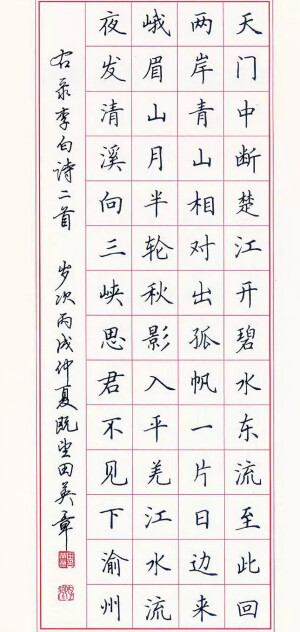 天门中断楚江开碧水东流至此回
两岸青山相对出孤帆一片日边来
峨眉山月半轮秋影入平羌江水流
夜发清溪向三峡思君不见下渝州
右录李白诗二首 岁次丙戌仲夏既望田英章